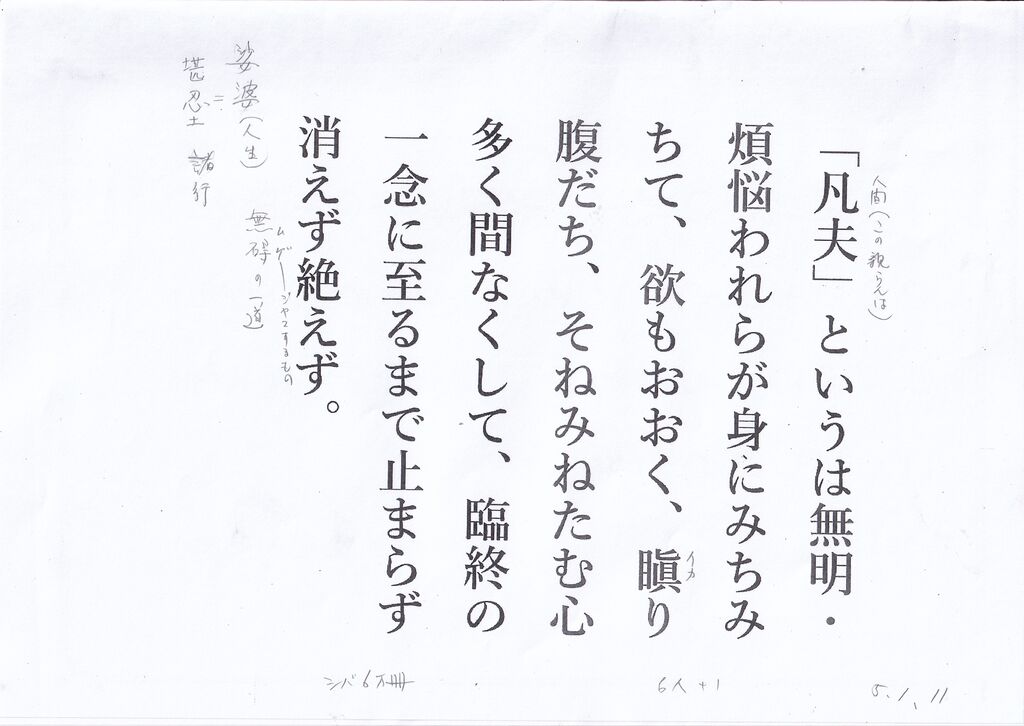 人間(この親らんは)
「凡夫」というは無明・
煩悩われらが身にみちみ
ちて、欲もおおく、瞋り
イカ
腹だち、そねみねたむ心
多く間なくして、臨終の
一念に至るまで止まらず
消えず絶えず。
ムゲージャマするもの
無碍の一道
娑婆(人生)
=
堪忍土 諸行
シバ6万冊
6人+1
5.1.11